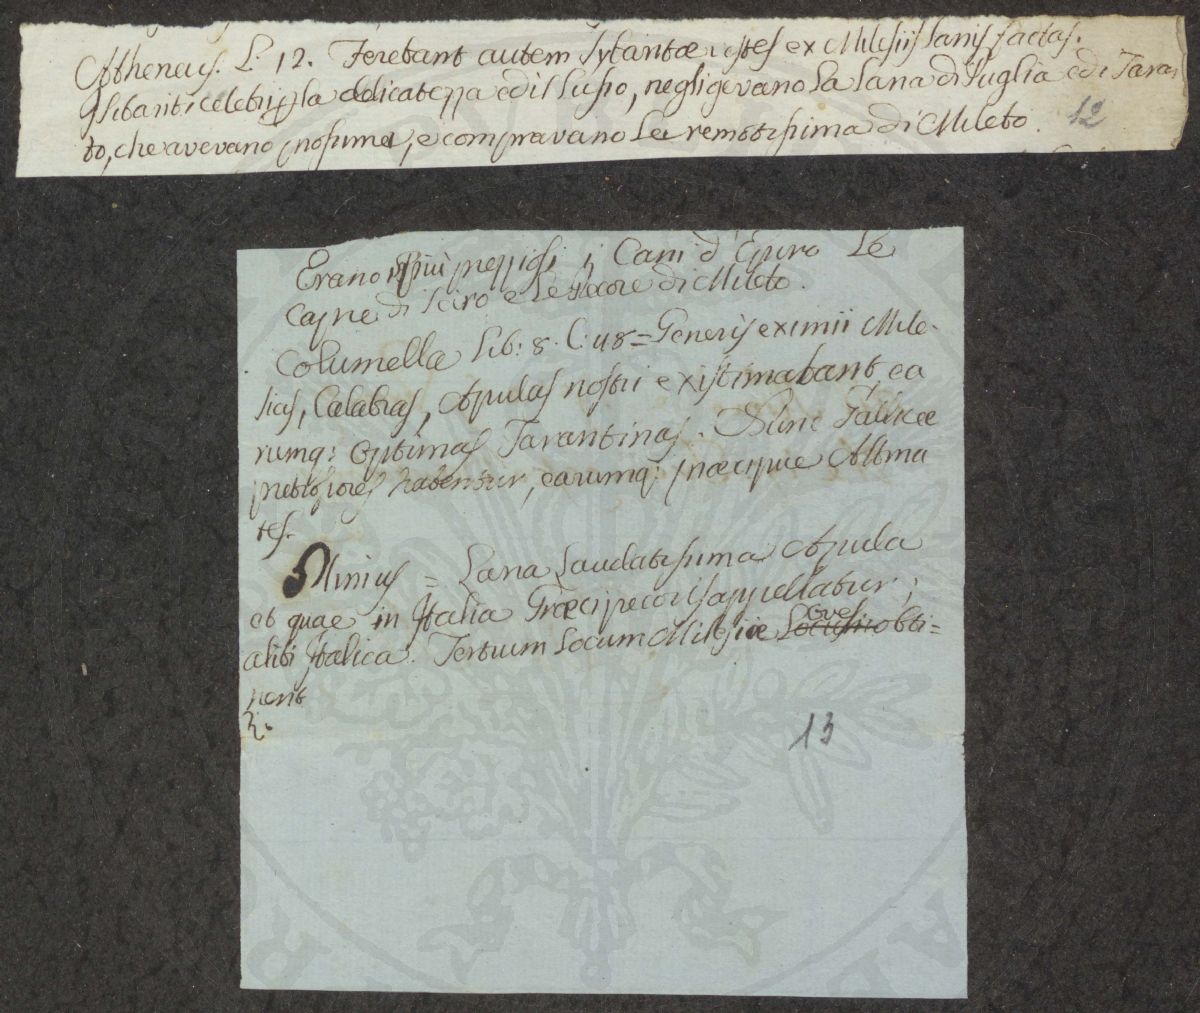 Atheneus. L. 12. Ferebant autem Sybaritae vestes ex Milesiis lanis factas.
I Sibariti celebri p la delicatezza ed il lusso, negligevano la lana di Puglia e di Taran
to, che avevano prossima, e compravano la remotissima di Mileto.
12
Erano più preggiosi i Cani d'Epiro Le
Capre di Sciro e le Pecore di Mileto.
Columella Lib: 8. C: 48 = Generis eximii Mile-
sias, Calabras, Apulas nostri existimabant, ea
rumq: optimas Tarantinas. Nunc Gallicae
pretiosiores habentur, earumq: praecipue Altina
tes.
Plinius = Lana laudatissima Apula
et quae in Italia Graeci pecoris appellatur;
alibi Italica. Tertium locum Milesiae oves
obti=
nent
13